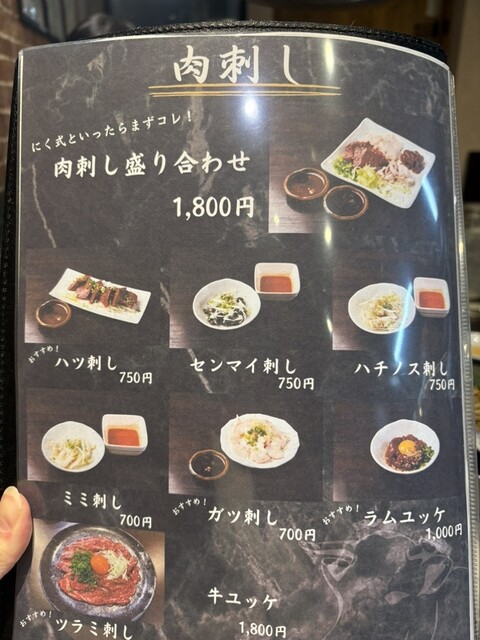 肉刺し
にく式といったらまずコレ！
肉刺し盛り合わせ
1,800円
おすすめ！
ハツ刺し
750円
センマイ刺し
750円
ハチノス刺し
750円
ミミ刺し
700円
おすすめ！
ガツ刺し
700円
おすすめ！
ラムユッケ
1,000円
おすすめ！
ツラミ刺し
牛ユッケ
1,800円